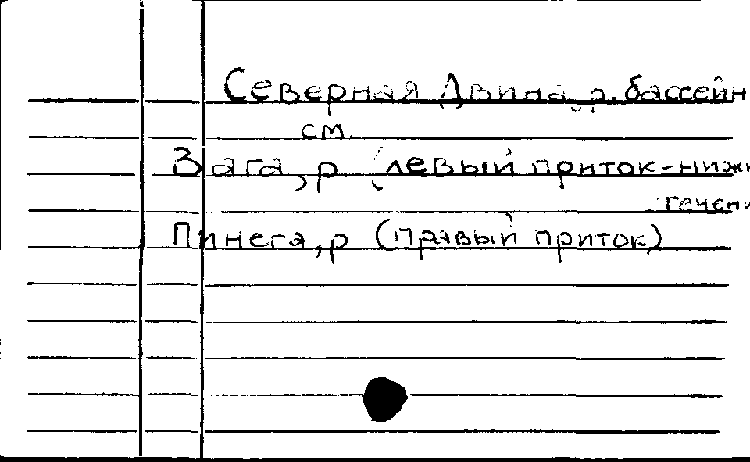 Северная Двина, р. бассейн
см.
Вага, р (левый приток-нижн
течени
Пинега, р (правый приток)